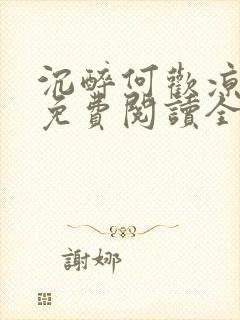 沉醉何歡涼
免費閱讀全
謝娜